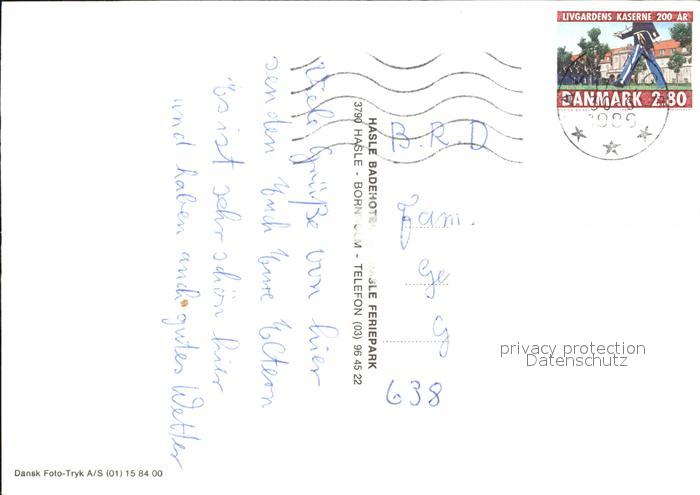 LIVGARDENS KASERNE 200 ÅR
DANMARK 2.80
1986
Viele Grüße von hier
senden Euch Eure Eltern
Es ist sehr schön hier
und haben auch gutes Wetter
HASLE BADEHOTEL HASLE FERIEPARK
3790 HASLE - BORNHOLM - TELEFON (03) 96 45 22
B.R.D
Fam.
638
privacy protection
Datenschutz
Dansk Foto-Tryk A/S (01) 15 84 00